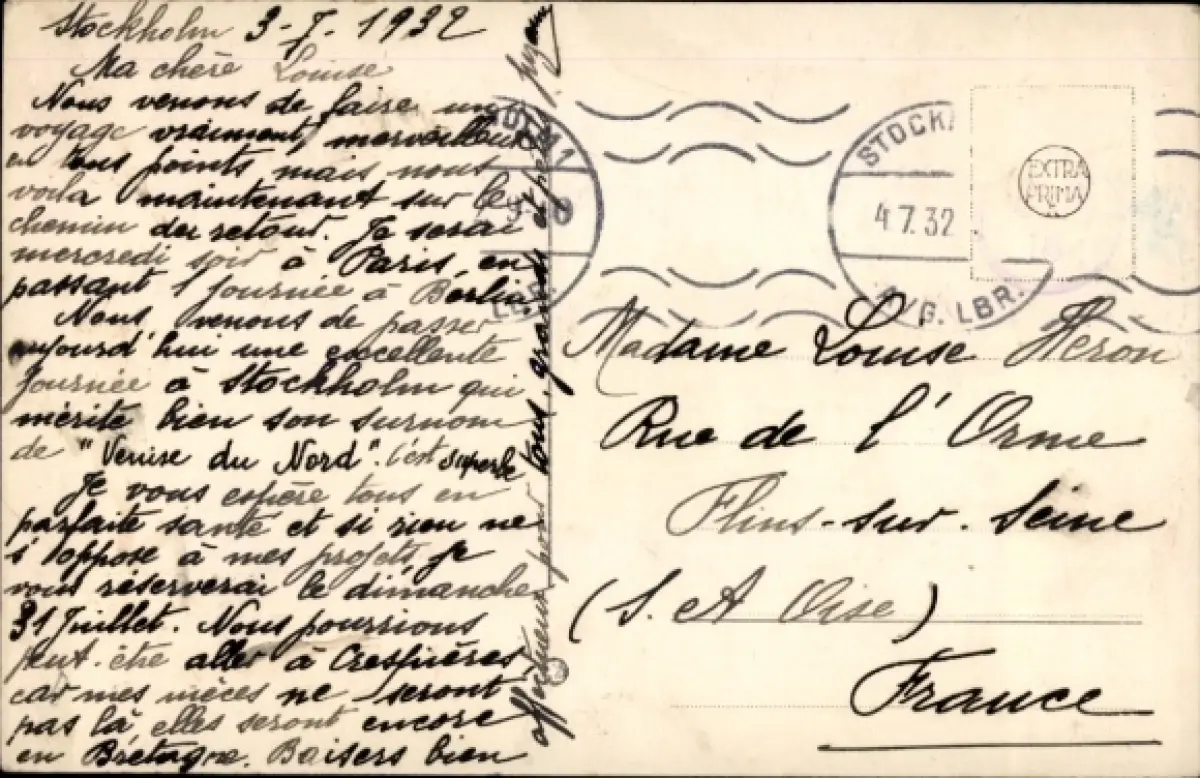 Stockholm 3-7.1932
Ma chère Louise
Nous venons de faire un
voyage vraiment merveilleux
en tous points mais nous
voilà maintenant sur le
chemin du retour. Je serai
mercredi soir à Paris, en
passant 1 journée à Berlin.
Nous venons de passer
aujourd'hui une excellente
journée à Stockholm qui
mérite bien son surnom
de "Venise du Nord". C'est superbe
Je vous espère tous en
parfaite santé et si rien ne
s'oppose à mes projets, je
vous réserverai le dimanche
31 Juillet. Nous pourrions
peut-être aller à Crespières
car mes nièces ne seront
pas là elles seront encore
en Bretagne. Baisers bien
affectueux pour tous, grands et petits
STOCK
4.7.32
LBR.
EXTRA
PRIMA
Madame Louise Heron
Rue de l'Orme
Flins-sur-Seine
(S. et Oise)
France